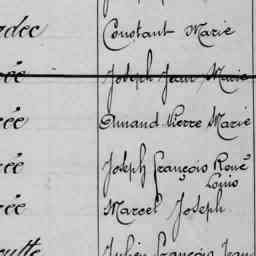 Constant Marie
Joseph Jean Marie
Amand Pierre Marie
Joseph François René
Louis
Marcel Joseph
Julien François Jean